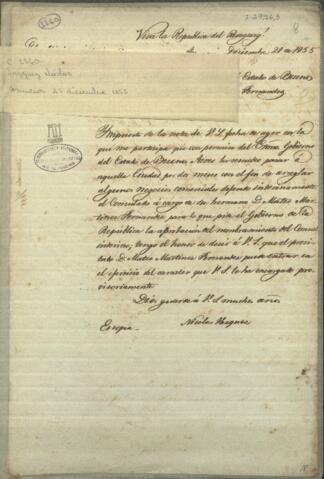 2260
1-29,26,3
8
Viva la Republica del Paraguay!
Diciembre 28 de 1855
C 2260
Vazquez Nicolas
Asuncion 28 diciembre 1855
Estado de Buenos
Fernandez
Impuesto de la nota de V.S. fecha de ayer en la
que me participa que con permiso del Exmo. Gobierno
del Estado de Buenos Aires ha resuelto pasar a
aquella Ciudad por dos meses con el fin de arreglar
algunos negocios comerciales dejando interinamente
el Consulado á cargo de su hermano D. Mateo Mar
tinez Fernandez para lo que pide al Gobierno de la
Republica la aprobacion del nombramiento del Consul
interino, tengo el honor de decir á V.S. que el
D. Mateo Martinez Fernandez puede entrar en
el ejercicio del caracter que V.S. le ha encargado pro
visoriamente.
Dios guarde á V.S. muchos años.
Nicolas Vazquez
Es copia